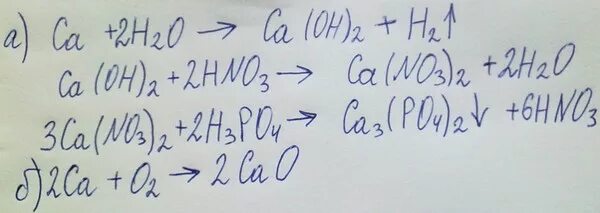 а) Ca + 2H2O → Ca(OH)2 + H2↑
Ca(OH)2 + 2HNO3 → Ca(NO3)2 + 2H2O
3Ca(NO3)2 + 2H3PO4 → Ca3(PO4)2↓ + 6HNO3
б) 2Ca + O2 → 2CaO